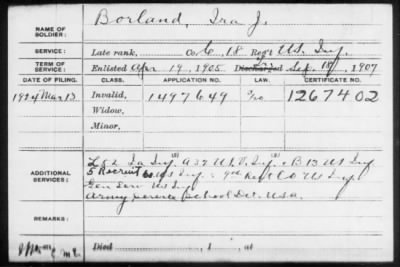 NAME OF SOLDIER: Borland, Ira J.
SERVICE: Late rank, Co. C, 18 Reg't U.S. Inf.
TERM OF SERVICE: Enlisted Apr 19, 1905 Discharged Sep. 18, 1907
DATE OF FILING. CLASS. APPLICATION NO. LAW. CERTIFICATE NO.
1924 Mar 13 Invalid, 1497649 1267402
Widow,
Minor,
ADDITIONAL SERVICES:
L 52 Ia Inf. A 39 U.S.V. Inf. & B 13 US Inf
5 Recruit Co US Inf. 9th Rec't Co US Inf.
Gen Serv US Inf
Army Service School Det. U.S.A.
REMARKS:
Died , 1 , at